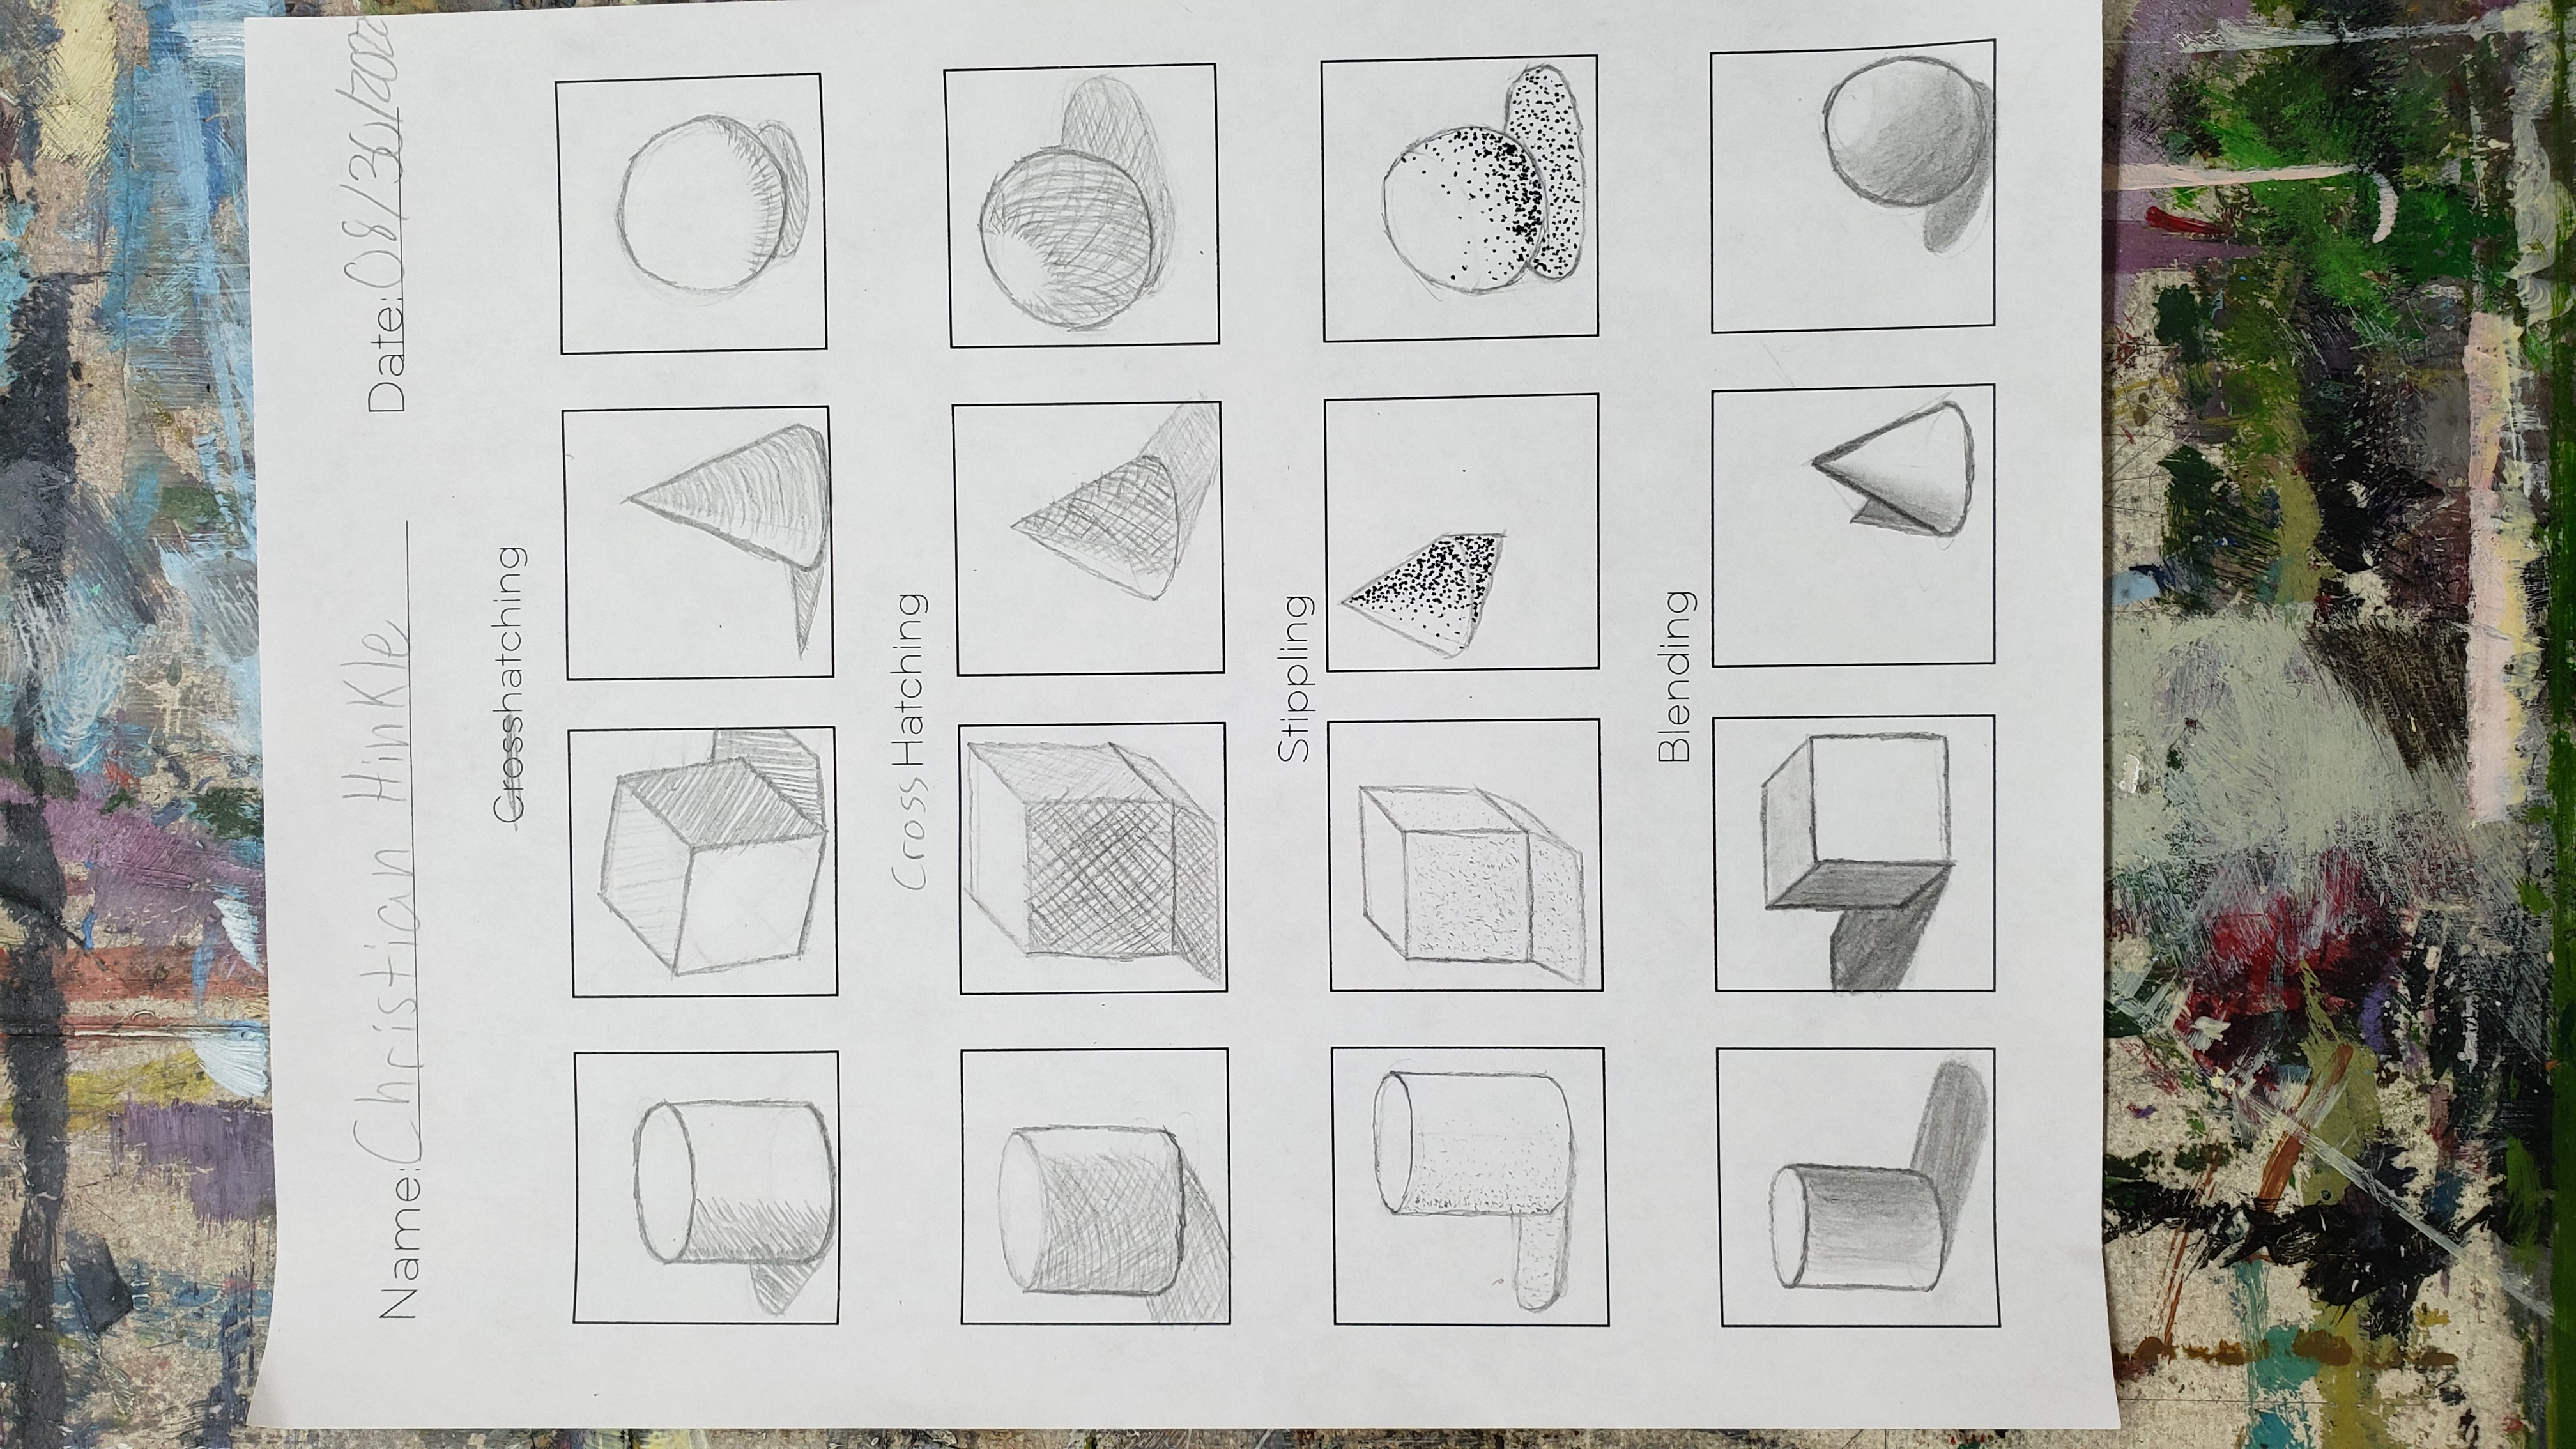 Name: Christian Hinkle Date: 08/30/2022
Crosshatching
Cross Hatching
Stippling
Blending